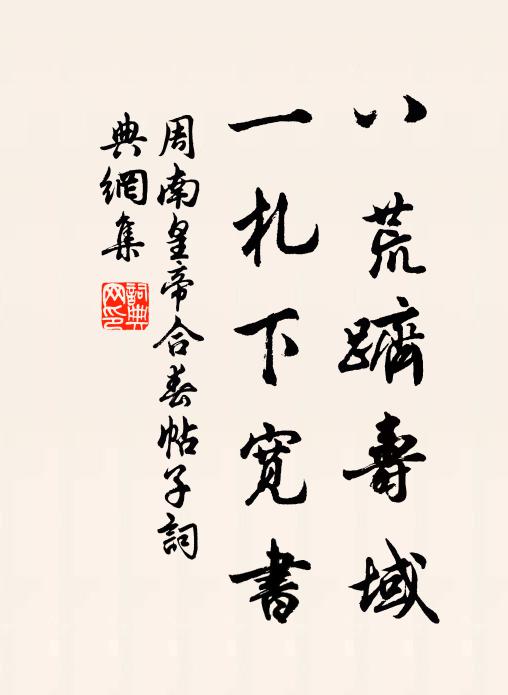 八荒躋壽域
一札下寬書
周南皇帝合春帖子詞
典網集
詞典網印